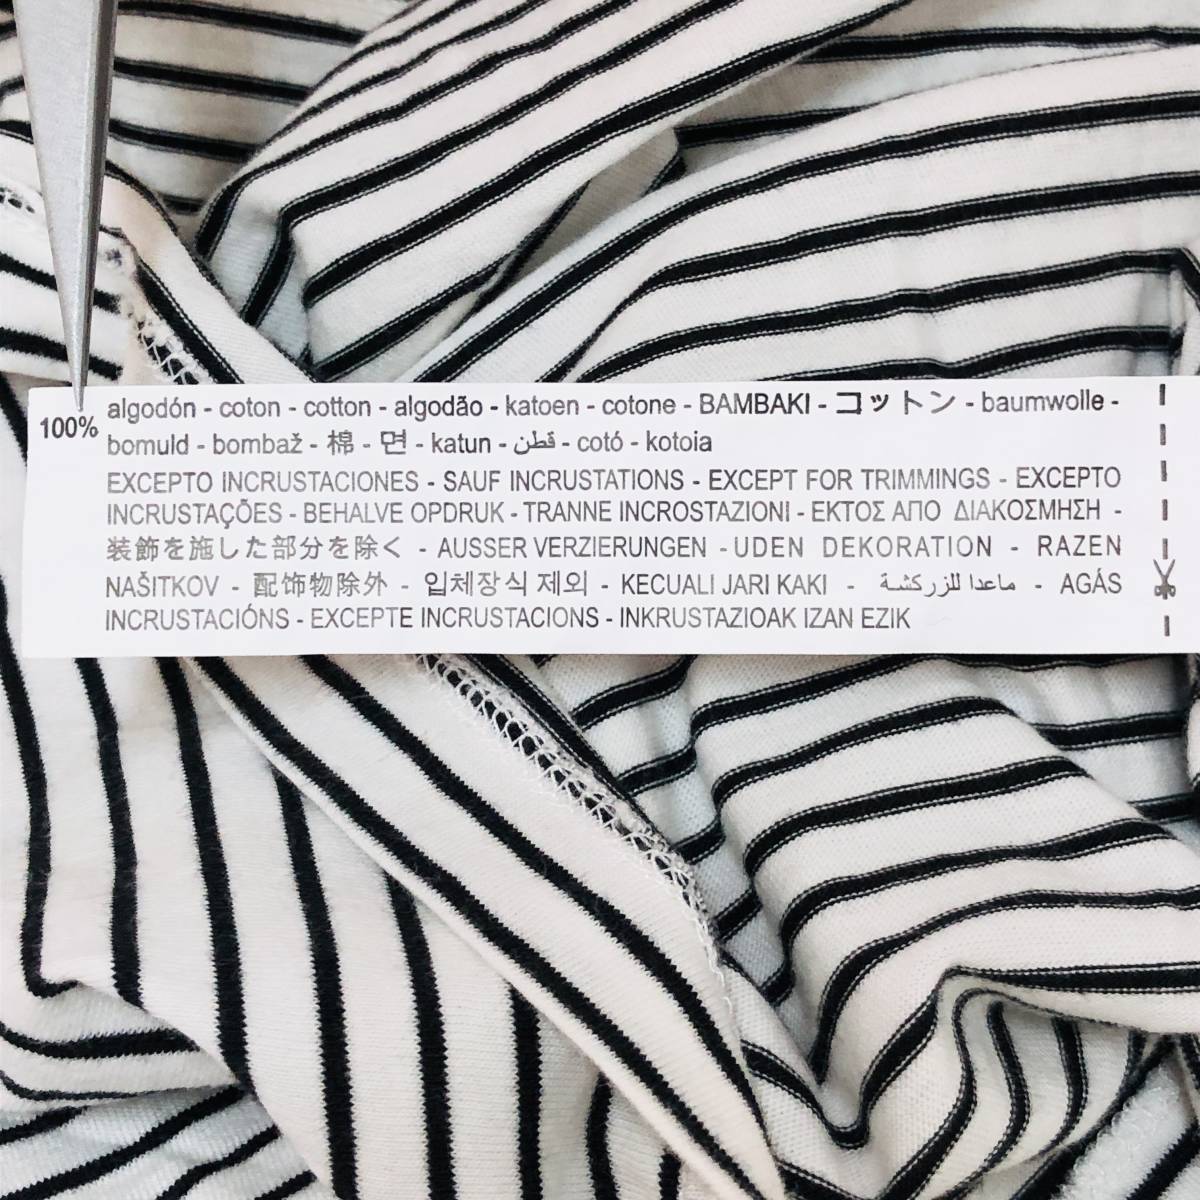 100% algodón - coton - cotton - algodão - katoen - cotone - BAMBAKI - コットン - baumwolle -
bomuld - bombaž - 棉 - 면 - katun - قطن - cotó - kotoia
EXCEPTO INCRUSTACIONES - SAUF INCRUSTATIONS - EXCEPT FOR TRIMMINGS - EXCEPTO
INCRUSTAÇÕES - BEHALVE OPDRUK - TRANNE INCROSTAZIONI - ΕΚΤΟΣ ΑΠΟ ΔΙΑΚΟΣΜΗΣΗ -
装飾を施した部分を除く - AUSSER VERZIERUNGEN - UDEN DEKORATION - RAZEN
NAŠITKOV - 配饰物除外 - 입체장식 제외 - KECUALI JARI KAKI - ماعدا للزركشة - AGÁS
INCRUSTACIÓNS - EXCEPTE INCRUSTACIONS - INKRUSTAZIOAK IZAN EZIK